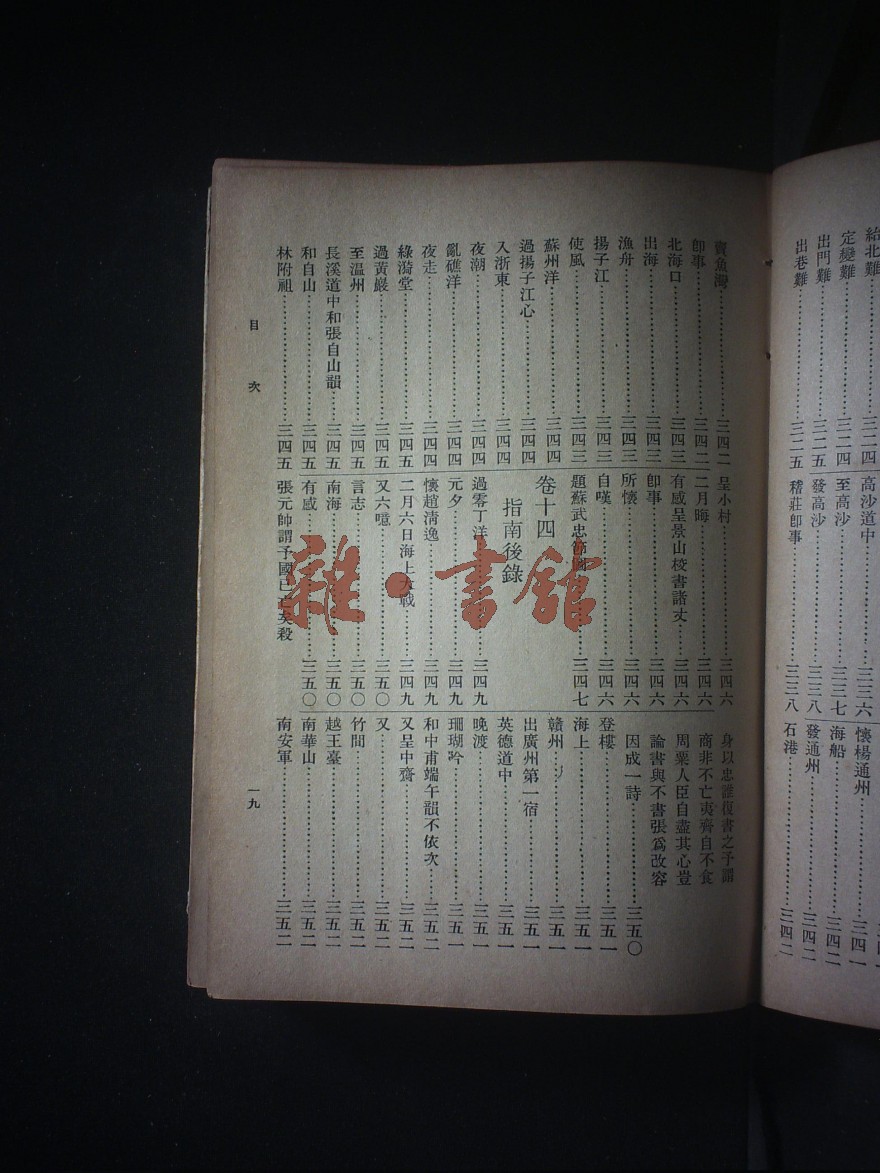 定變難……三二四
出門難……三二五
出巷難……三二五
高沙道中……三三六
至高沙……三三七
發高沙……三三八
稽莊卽事……三三八
懷楊通州……三四一
海船……三四二
發通州……三四二
石港……三四二
賣魚灣……三四二
卽事……三四二
北海口……三四三
出海……三四三
漁舟……三四三
揚子江……三四三
使風……三四三
蘇州洋……三四四
過揚子江心……三四四
入浙東……三四四
夜潮……三四四
亂礁洋……三四四
夜走……三四四
綠漪堂……三四五
過黃巖……三四五
至温州……三四五
長溪道中和張自山韻……三四五
和自山……三四五
林附祖……三四五
呈小村……三四六
二月晦……三四六
有感呈景山校書諸丈……三四六
卽事……三四六
所懷……三四六
自嘆……三四六
題蘇武忠節圖……三四七
卷十四
指南後錄
過零丁洋……三四九
元夕……三四九
懷趙清逸……三四九
二月六日海上大戰……三四九
又六噫……三五〇
言志……三五〇
南海……三五〇
有感……三五〇
張元帥謂予國已亡矣殺
身以忠誰復書之予謂
商非不亡夷齊自不食
周粟人臣自盡其心豈
論書與不書張爲改容
因成一詩……三五〇
登樓……三五一
海上……三五一
贛州……三五一
出廣州第一宿……三五一
英德道中……三五一
晚渡……三五一
珊瑚吟……三五一
和中甫端午韻不依次……三五二
又呈中齋……三五二
又……三五二
竹間……三五二
越王臺……三五二
南華山……三五二
南安軍……三五二
目次
一九
雜·書館